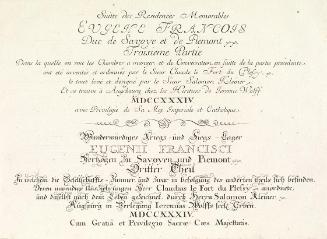 Suitte des Residences Memorables
EUGENE FRANCOIS
Duc de Savoye et de Piemont
Troisieme Partie
Dans la quelle on voit les Chambres a manger et de Conversation, en suite de la partie precedente
ont ete inventes et ordonnes par le Sieur Claude le Fort du Plessy
le tout leve et designe par le Sieur Salomon Kleiner
Et se trouve a Augsbourg chez les Heritiers de Jeremie Wolff
MDCCXXXIV
avec Privilege de Sa Maj. Imperiale et Catholique
Wunderwürdiges Kriegs und Siegs Lager
EUGENII FRANCISCI
Hertzogen zu Savoyen und Piemont
Dritter Theil
In welchen die Gesellschaffts Zimmer und zwar in befolgung des anderten theils sich befinden
Herr Claudius le Fort du Plessy anordnete,
und durch Herrn Salomon Kleiner
Augspurg in Verlegung Jeremias Wolffs seel. Erben
MDCCXXXIV.
Cum Gratia et Privilegio Sacrae Caes. Majestatis.